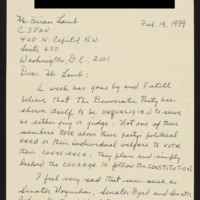 Mr. Brian Lamb
Feb. 14, 1999
C SPAN
400 N. Capitol N.W.
Suite 650
Washington, D.C., 2001
Dear Mr. Lamb:
A week has gone by and I still
believe that the Democratic Party has
shown itself to be UNQUALIFIED to serve
as either jury or judge. Not one of their
members rose above their party political
need or their individual welfare to vote
their CONSCIENCE. They plain and simply
lacked the COURAGE to follow the CONSTITUTION.
I feel very sad that men such as
Senator Moynihan, Senator Byrd and Senator